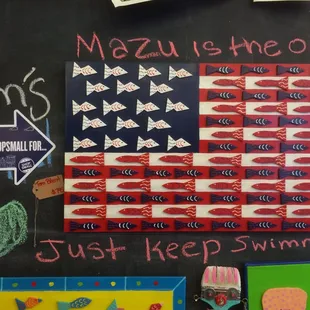 Mazu is the o
m's
OPSMALL FOR...
Just Keep Swimm